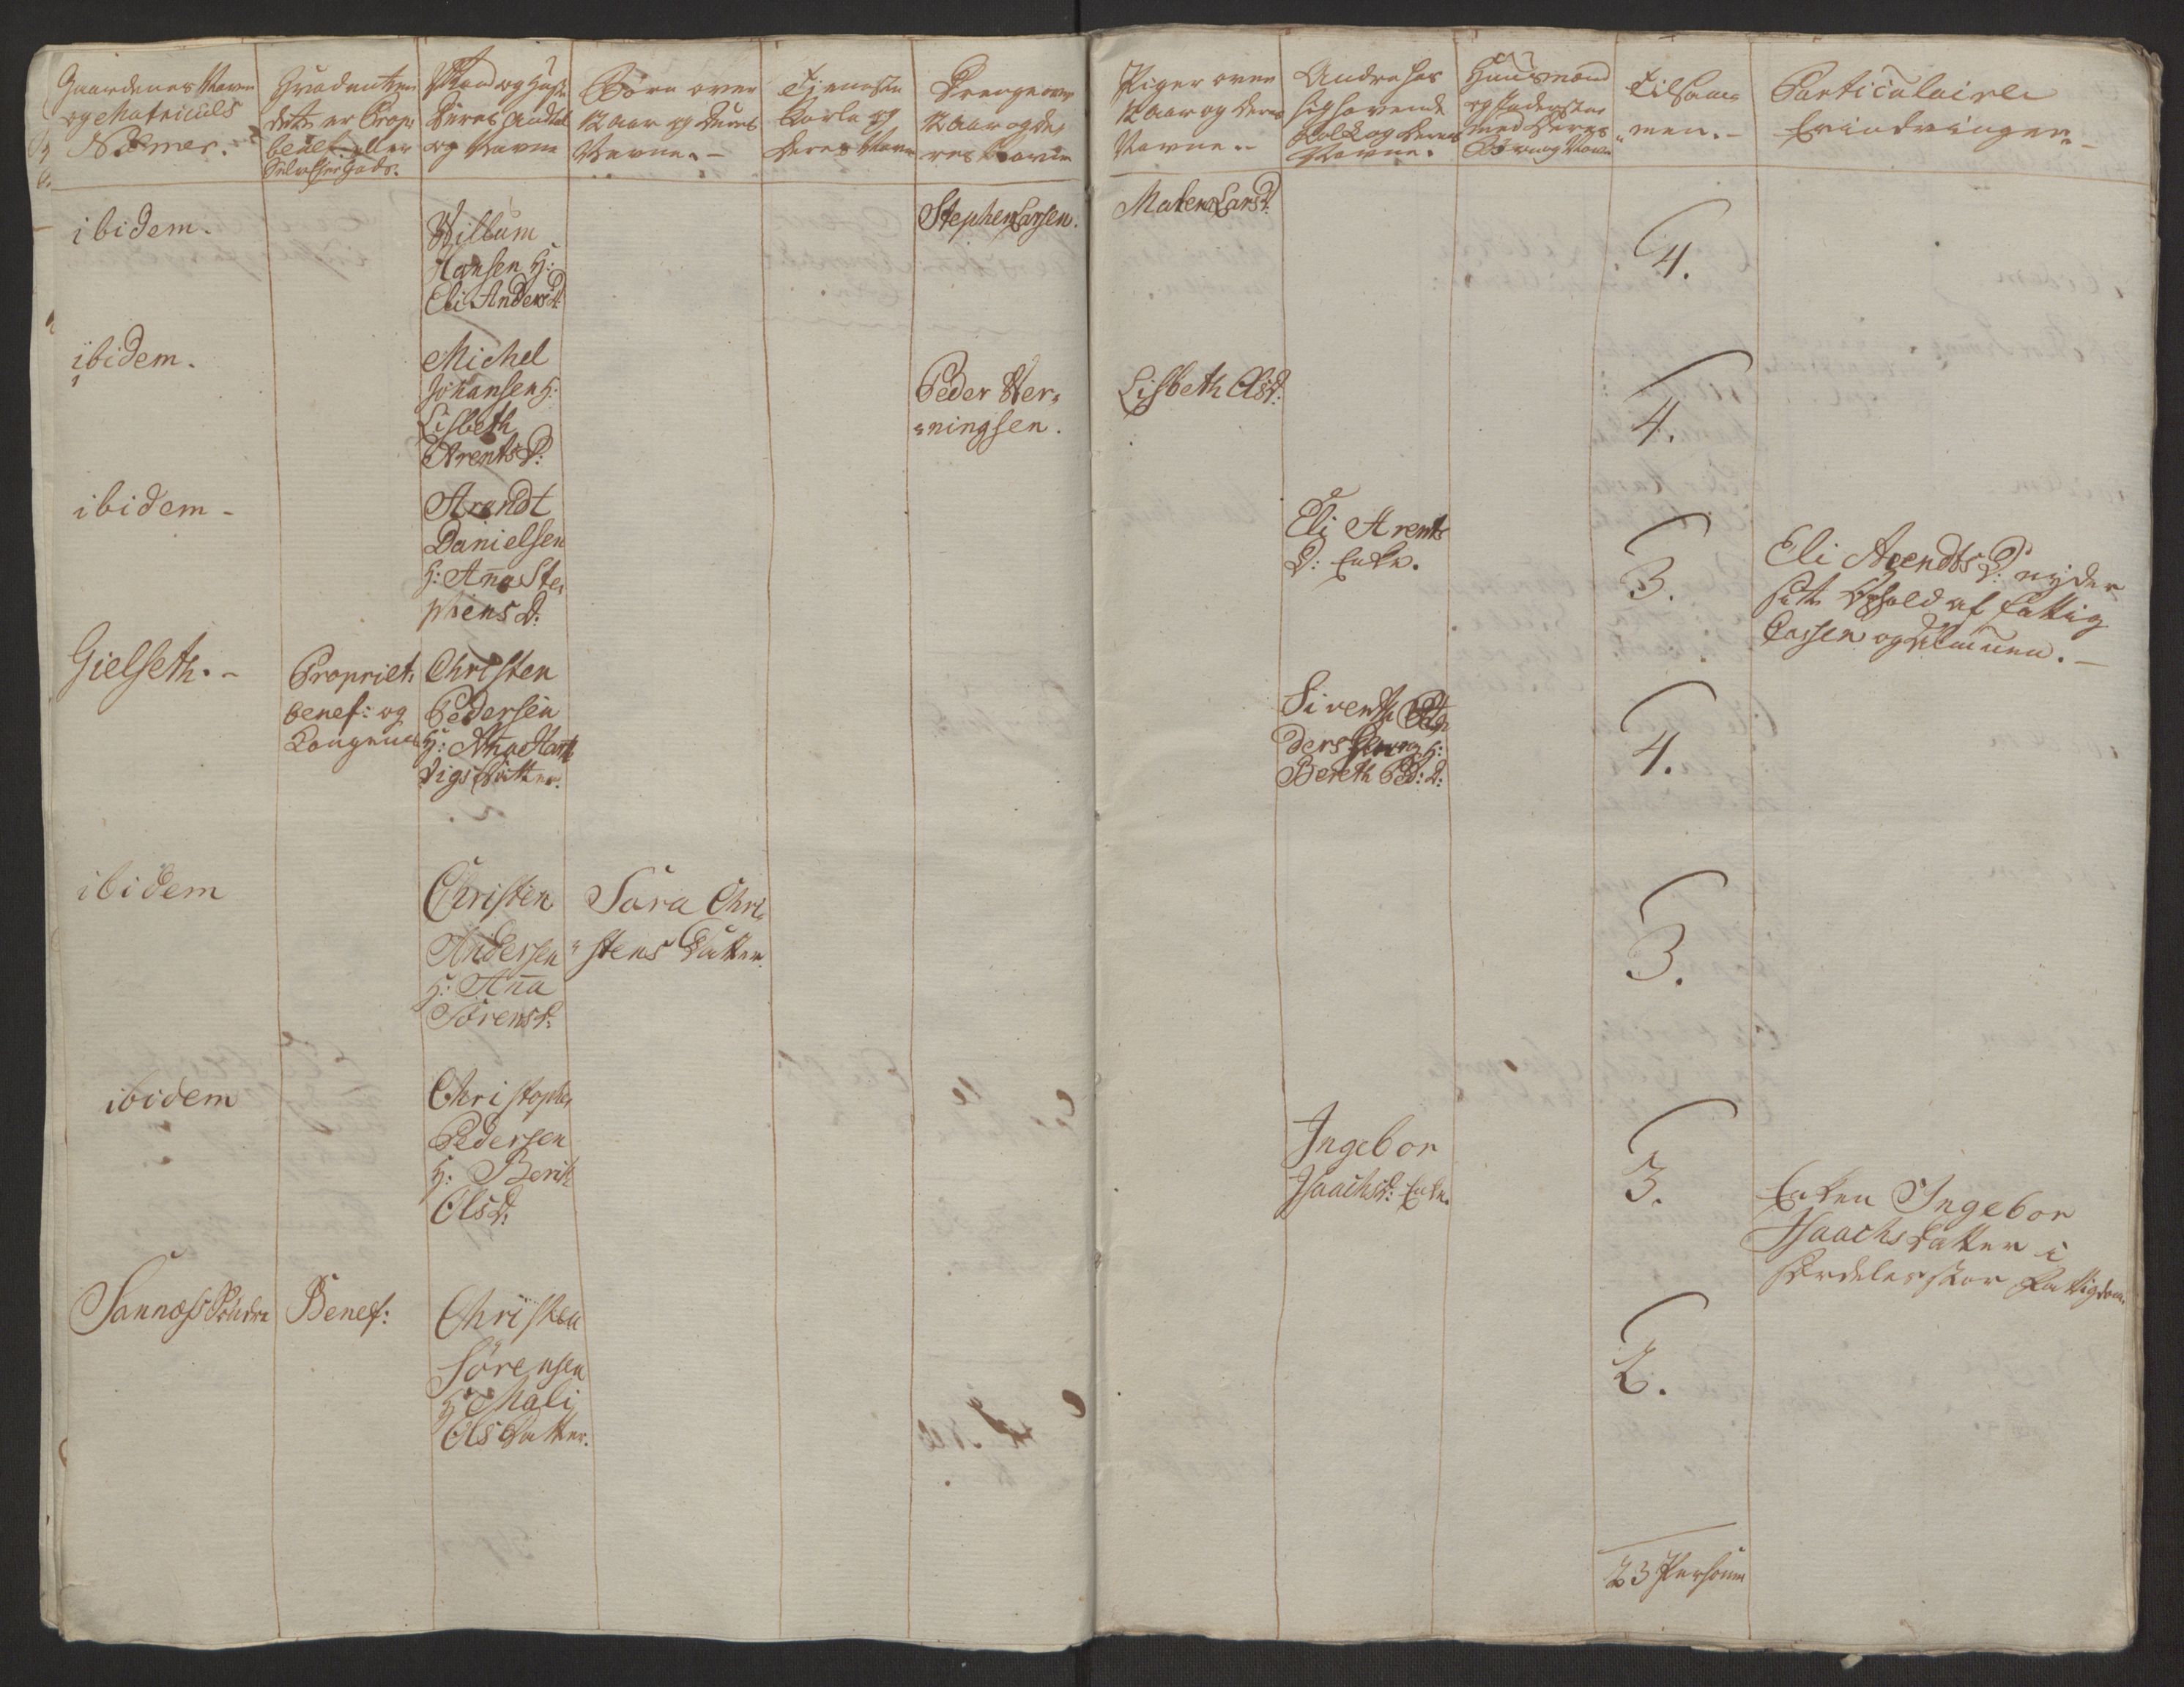 Gaardenes Navn
og Matriculs
Nummer.
Hvad enten
dette er Propr:
benef: eller
Selv Ejer Gods.
Mand og Hust:
Deres Andtal
og Navne
Børn over
12 Aar og deres
Navne. -
Tieneste
Karle og
deres Navne
Drenge over
12 Aar og de,
res Navne
Piger over
12 Aar og deres
Navne. -
Andre hos
sig havende
Folk og deres
Navne.
Huusmænd
og Inderster
med deres
Børn og Navne
Tilsam,
men. -
Particulaire
Erindringer. -
ibidem.
Willum
Hansen H:
Eli AndersD:
Stephen Larsen.
Maren LarsD:
4.
ibidem.
Michel
Johansen H:
Lisbeth
ArentsD:
Peder Her,
ningsen.
Lisbeth OlsD:
4.
ibidem -
Arendt
Danielsen
H: Ana Ste,
phensD:
Eli Arents
D: Enke.
3.
Eli Arendts D: nyder
sit Ophold af Fattig
Cassen og Almuen. -
Gielseth. -
Propriet:
benef: og
Christen
Pedersen
H: Ana Hart
vigs Datter.
ders H:
Bereth Ped: D:
4.
ibidem
Christen
Andersen
H: Ana
SørensD:
Sara Chri,
stens Datter.
3.
ibidem
Christopher
Pedersen
H: Berit
OlsD:
Ingebor
IsaachsD: Enke.
3.
Enken Ingebor
Isaachs Datter i
særdeles stor Fattigdom.
Sannæss Søndre
Benef:
Christen
Sørensen
H: Mali
Ols Datter.
2.
23 Personer